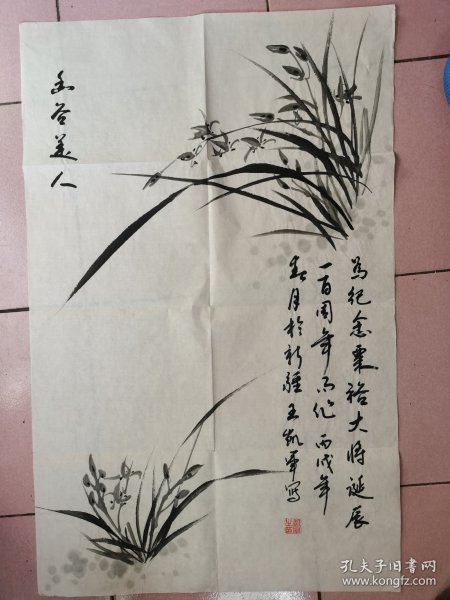 幽谷美人
为纪念粟裕大将诞辰
一百周年而作 丙戌年
春月於新疆王凯军写
孔夫子旧书网
www.kongfz.com